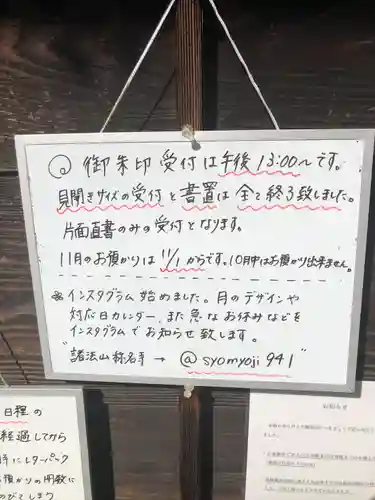 ◎御朱印受付は午後13:00〜です。
見開きサイズの受付と書置は全て終了致しました。
片面直書のみの受付となります。
11月のお預かりは11/1からです。10月中はお預かり出来ません。
※インスタグラム始めました。月のデザインや
対応日カレンダー、また急なお休みなどを
インスタグラムでお知らせ致します。
"諸法山称名寺 → @syomyoji941"
日程の
経過してから
手にレターパック
お預かりの冊数に
お知らせ